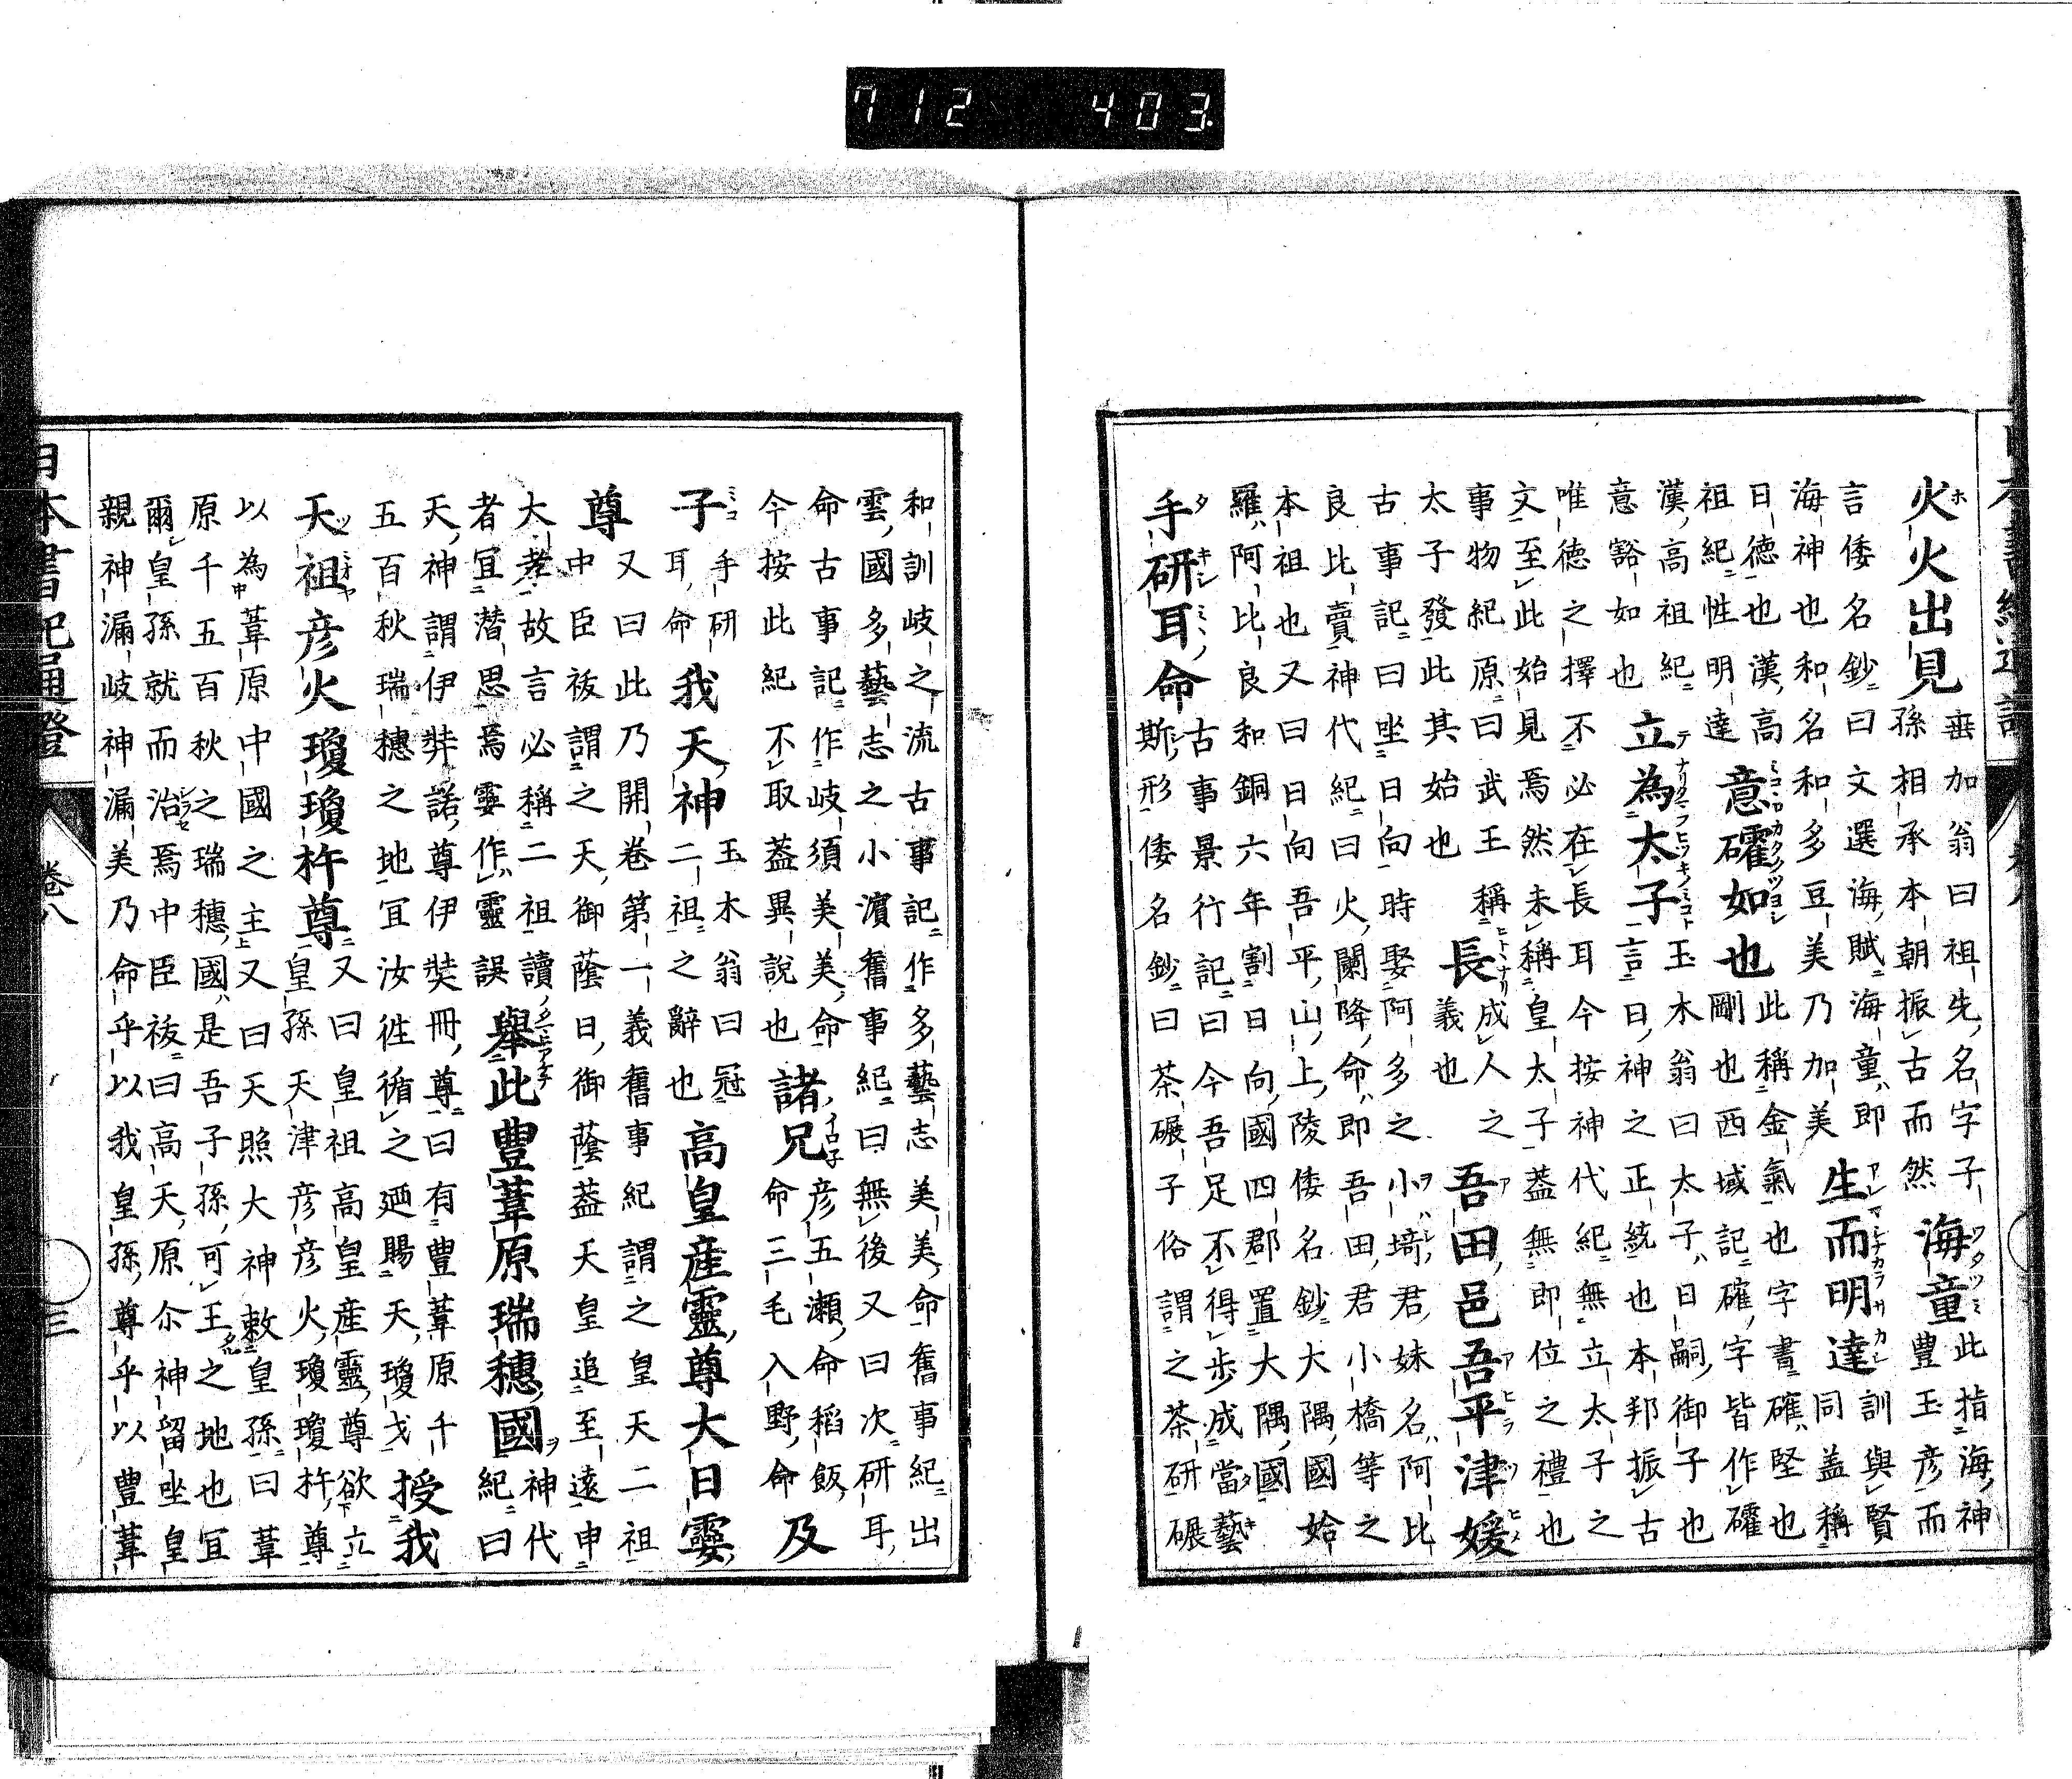 712 403
火火出見 垂加翁曰祖先名字子
孫相承本朝振古而然 海童 此指海神
豊玉彦而
言倭名鈔曰文選海賦海童即
海神也和名和多豆美乃加美 生而明達 訓與賢
同盖稱
日徳也漢高 意礭如也 此稱金氣也字書確堅也
剛也西域記確字皆作礭
祖紀性明達
漢高祖紀
意豁如也 立為太子 玉木翁曰太子日嗣御子也
言日神之正統也本邦振古
唯徳之擇不必在長耳今按神代紀無立太子之
文至此始見焉然未稱皇太子蓋無即位之禮也
事物紀原曰武王
太子發此其始也 長 稱成人之
義也 吾田邑吾平津媛
古事記曰坐日向時娶阿多之小埼君妹名阿比
良比賣神代紀曰火闌降命即吾田君小橋等之
本祖也又曰日向吾平山上陵倭名鈔大隅國姶
羅阿比良和銅六年割日向國四郡置大隅國
手研耳命 古事景行記曰今吾足不得歩成當藝
斯形倭名鈔曰茶碾子俗謂之茶研碾
和訓岐之流古事記作多藝志美美命舊事紀出
雲國多藝志之小濵舊事紀曰無後又曰次研耳
命古事記作岐須美美命
今按此紀不取葢異說也 諸兄 彦五瀬命稻飯
命三毛入野命 及
子 手研
耳命 我天神 玉木翁曰冠
二祖之辭也 高皇産靈尊大日孁
尊 又曰此乃開卷第一義舊事紀謂之皇天二祖
中臣祓謂之天御蔭日御蔭葢天皇追至遠申
大孝故言必稱二祖讀
者宜潛思焉孁作靈誤 舉此豊葦原瑞穗國 神代
紀曰
天神謂伊弉諾尊伊弉冊尊曰有豊葦原千
五百秋瑞穗之地宜汝徃循之廼賜天瓊戈 授我
天祖彦火瓊瓊杵尊 又曰皇祖高皇産靈尊欲立
皇孫天津彦彦火瓊瓊杵尊
以為葦原中國之主又曰天照大神敕皇孫曰葦
原千五百秋之瑞穗國是吾子孫可王之地也宜
爾皇孫就而治焉中臣祓曰高天原尒神留坐皇
親神漏岐神漏美乃命乎以我皇孫尊乎以豊葦
日本書紀通證 卷八 三